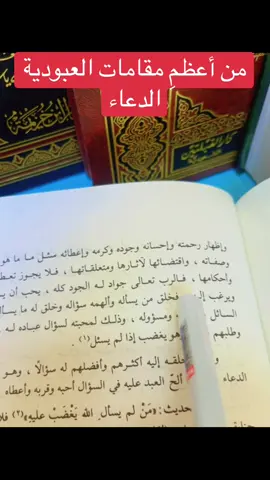 من أعظمِ مقامات العبودية
الدعاء
وإظهار رحمته وإحسانه وجوده وكرمه وإعطائه سئل ما هو
وصفاته ، واقتضائها لآثارها ومتعلقاتها ، فلا يجوز
وأحكامها ، فالرب تعالى جواد له الجود كله ، يحب أن
ويرغب فخلق من يسأله وألهمه سؤاله وخلق له ما
السائل ومسؤوله ، وذلك لمحبته لسؤال عباده له
وطلبهم يغضب إذا لم يسئل(١) .
أكثرهم وأفضلهم له سؤالًا ، وهو
الدعاء ألح العبد عليه في السؤال أحبه وقربه وأعطاه
حديث : «مَنْ لم يسألِ الله يَغْضَبْ عليهِ»(٢)